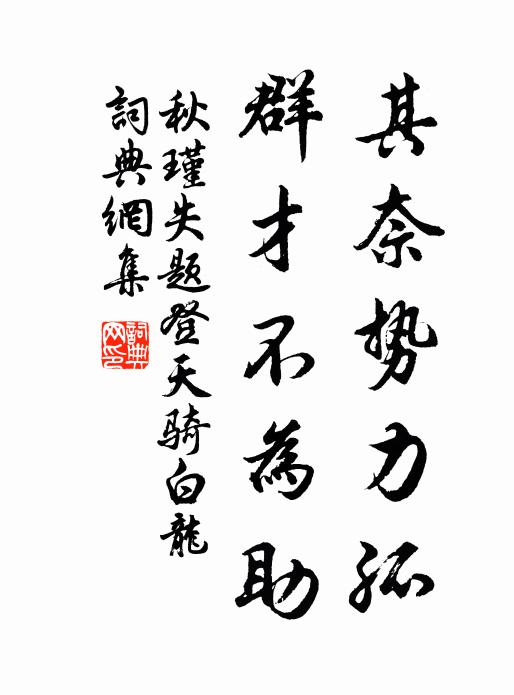 其奈势力孤
群才不為助
秋瑾失题登天骑白龍
詞典網集
詞典网印